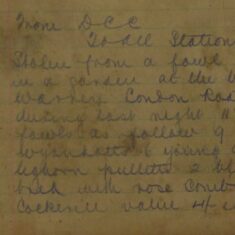 From D.C.C
To All Station
Stolen from a fowl
in a garden at the
Warren London Road
during last night 11
fowls as follow 9
Wyandotts 6 young
leghorn pullets 2 bl
bred with rose Comb
Cockerill value 4/-